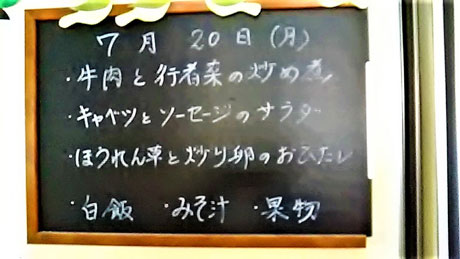 7月 20日(月)
・牛肉と行者菜の炒め煮
・キャベツとソーセージのサラダ
・ほうれん草と炒り卵のおひたし
・白飯 ・みそ汁 ・果物